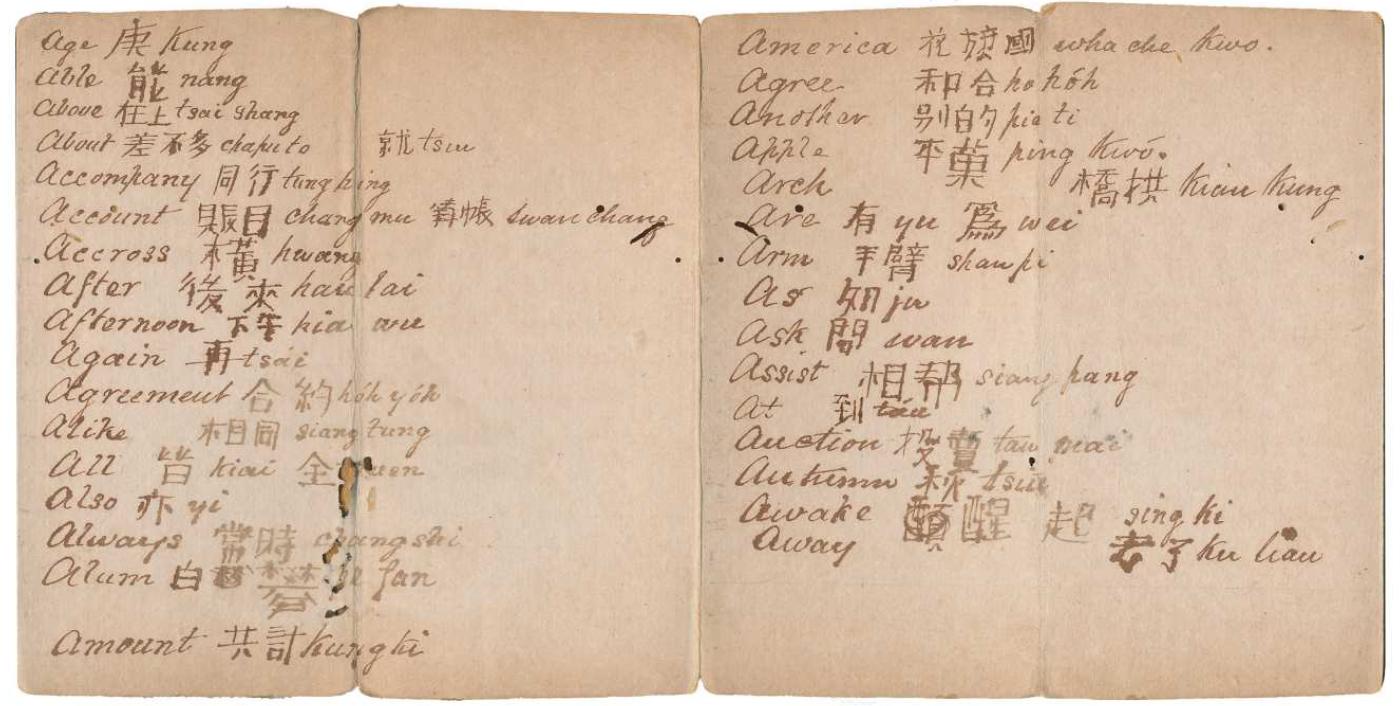 Age 庚 Kung
Able 能 nang
Above 在上 tsai shang
About 差不多 chaputo 就 tsiu
Accompany 同行 tung hing
Account 賬目 chang mu 算帳 swan chang
Accross 橫 hwang
After 後來 hau lai
Afternoon 下午 hia wu
Again 再 tsái
Agreement 合約 hóh yóh
Alike 相同 siang tung
All 皆 kiai 全
Also 亦 yi
Always 常時 changshi
Alum 白礬 fan
Amount 共計 kungki
America 花旗國 wha che kwo.
Agree 和合 ho hóh
Another 别的 pie ti
Apple 平菓 ping kwó.
Arch 橋拱 kiau kung
Are 有 yu 爲 wei
Arm 手臂 shau pi
As 如 ju
Ask 問 wan
Assist 相帮 siang pang
At 到 táu
Auction 投賣 tau mai
Autumn 秋 tsiu
Awake 醒起 sing ki
Away 去了 ku liau